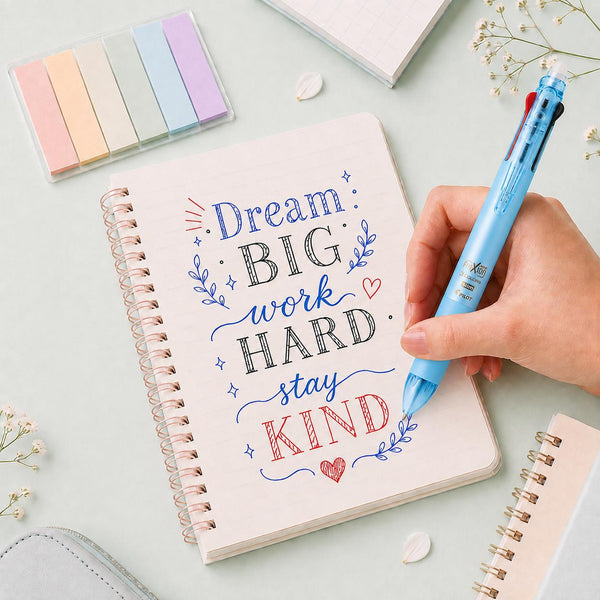 Dream
BIG
work
HARD
stay
KIND
PILOT